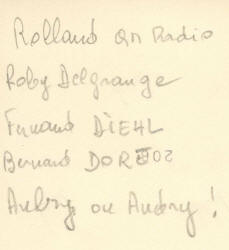 Rolland QM Radio
Roby Delgrange
Fernand DIEHL
Bernard DOR
Aubry ou Audry !